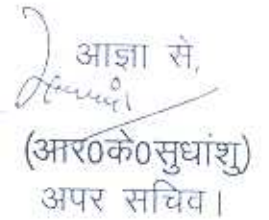 आज्ञा से,
(आर0के0सुधांशु)
अपर सचिव।